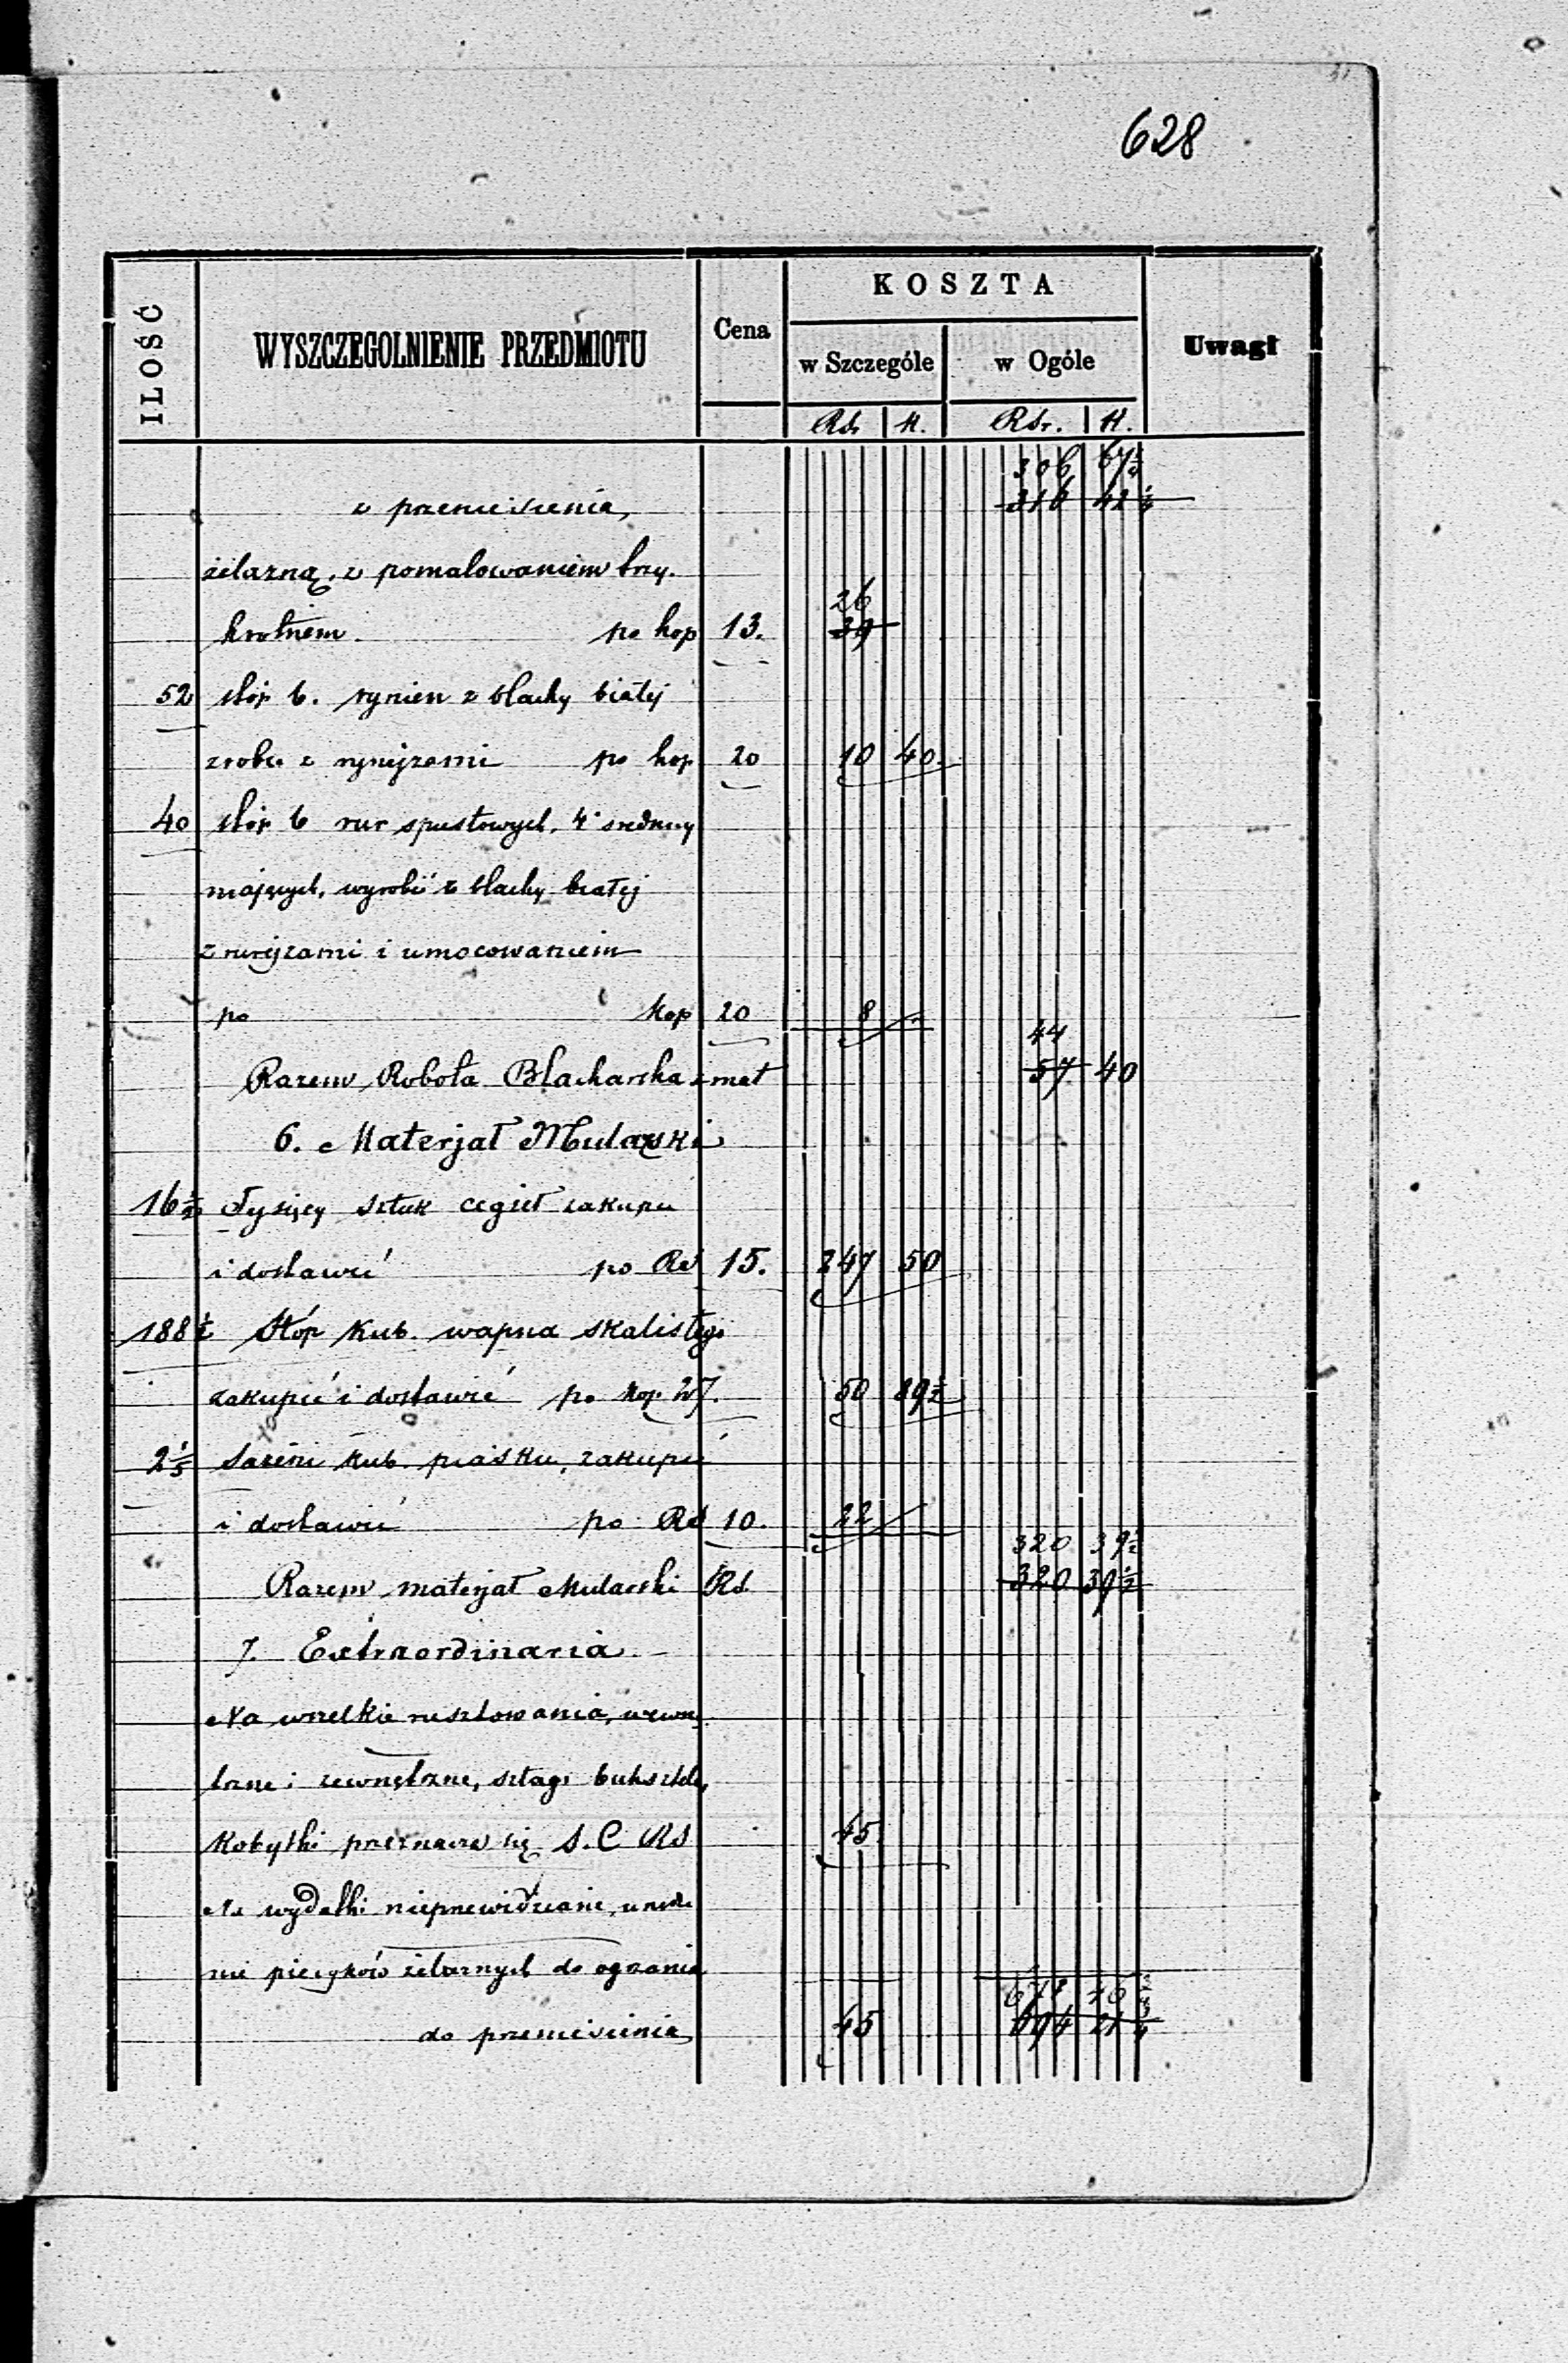 628
ILOŚĆ WYSZCZEGOLNIENIE PRZEDMIOTU Cena KOSZTA Uwagi
w Szczególe w Ogóle
Rs. K. Rsr. K.
306 67½
z przeniesienia, 316 42¼
żelazną, z pomalowaniem trzy-
26
krotnem po kop 13. 39
52 stóp b. rynien z blachy białej
zrobić z rynajzami po kop 20 10 40
40 stóp b rur spustowych, 4" średnicy
mających, wyrobić z blachy białej
z rurajzami i umocowaniem
po kop 20 8
44
Razem Robota Blacharska z mat 57 40
6. Materjał Mularski
16½ Tysięcy sztuk cegieł zakupić
i dostawić po Rs 15. 247 50
188½ Stóp Kub. wapna skalistego
zakupić i dostawić po kop 27. 50 89½
2⅕ Sążni kub. piasku, zakupić
i dostawić po Rs 10. 22
320 39½
Razem materjał Mularski Rs. 320 39½
7. Extraordinaria
Na wszelkie rusztowania, wewnę-
trzne i zewnętrzne, sztagi buksztele,
Kobyłki przeznacza się S.C Rs 45
Na wydatki nieprzewidziane, urządze
nie piecyków żelaznych do ogrzania
do przeniesienia 45 694 21¾